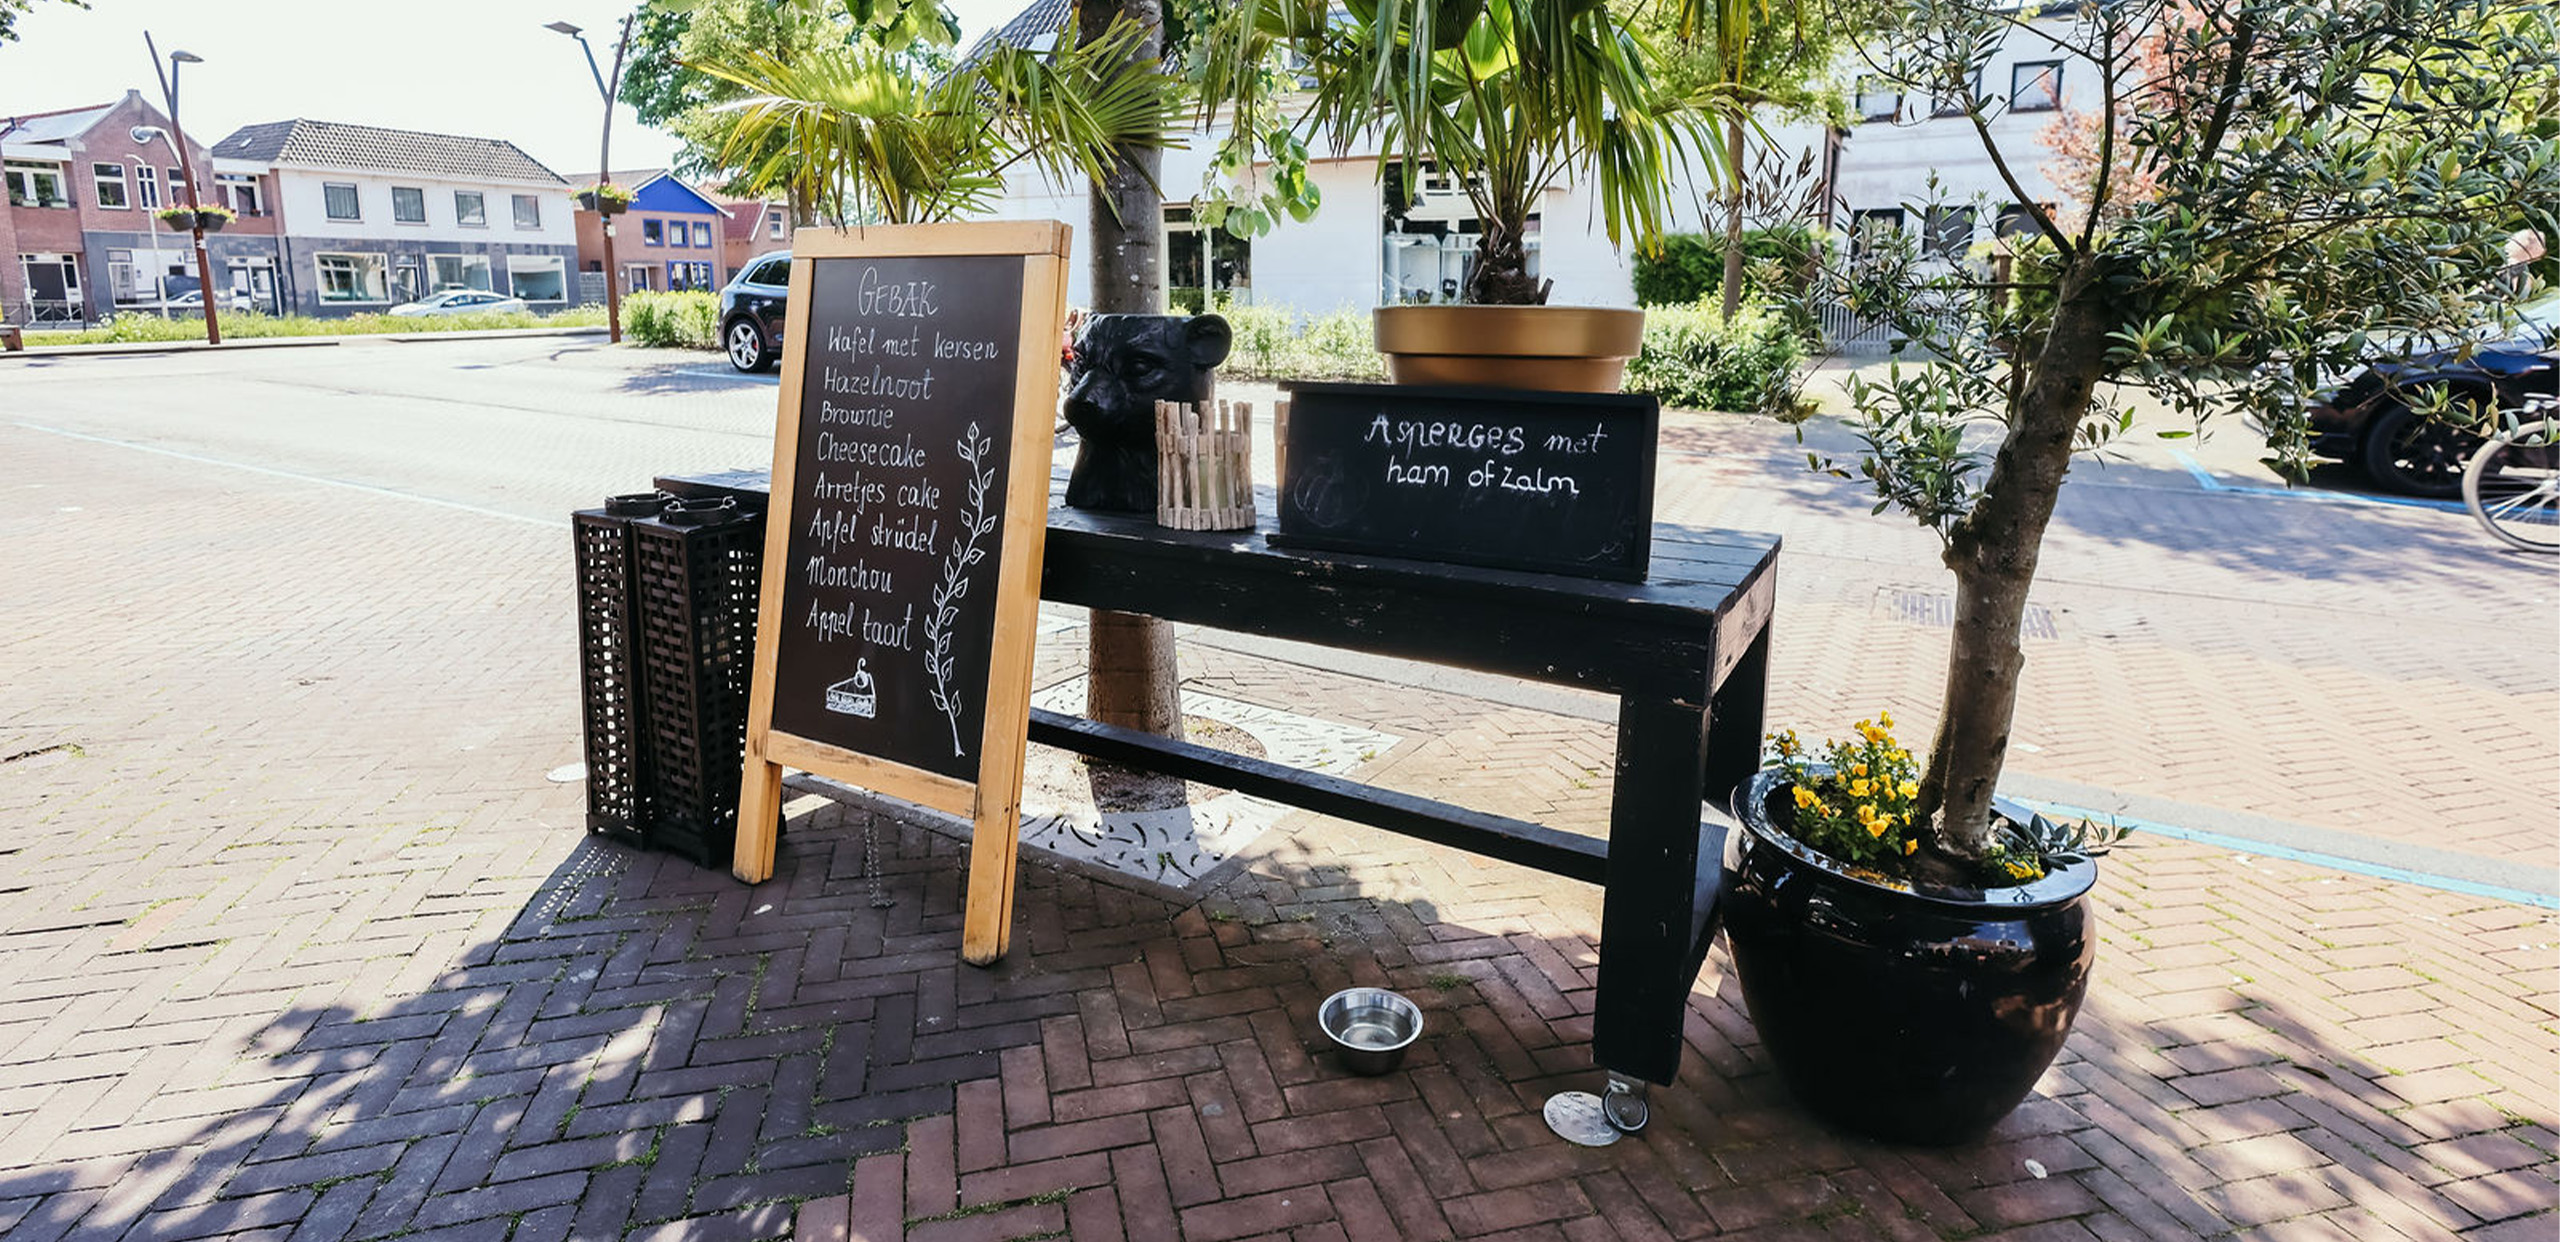 GEBAK
Wafel met kersen
Hazelnoot
Brownie
Cheesecake
Arretjes cake
Apfel strüdel
Monchou
Appel taart
ASPERGES met
ham of Zalm